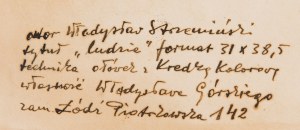 autor Władysław Strzemiński
tytuł „ludzie" format 31 x 38,5
technika ołówek, kredką kolorową
własność Władysława Górskiego
zam Łódź Piotrkowska 142